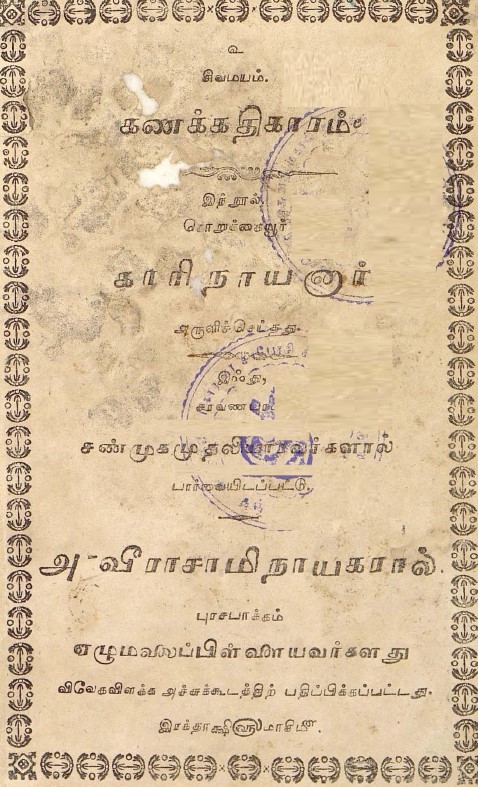 உ
சிவமயம்.
கணக்கதிகாரம்.
இந்நூல்
கொறுக்கையூர்
காரிநாயனார்
அருளிச்செய்தது.
இஃது,
சரவணபுரம்
சண்முகமுதலியாரவர்களால்
பார்வையிடப்பட்டு,
அ-வீராசாமிநாயகரால்.
புரசபாக்கம்
ஏழுமலைப்பிள்ளையவர்களது
விவேகவிளக்க அச்சுக்கூடத்திற் பதிப்பிக்கப்பட்டது.
இரக்தாக்ஷி௵